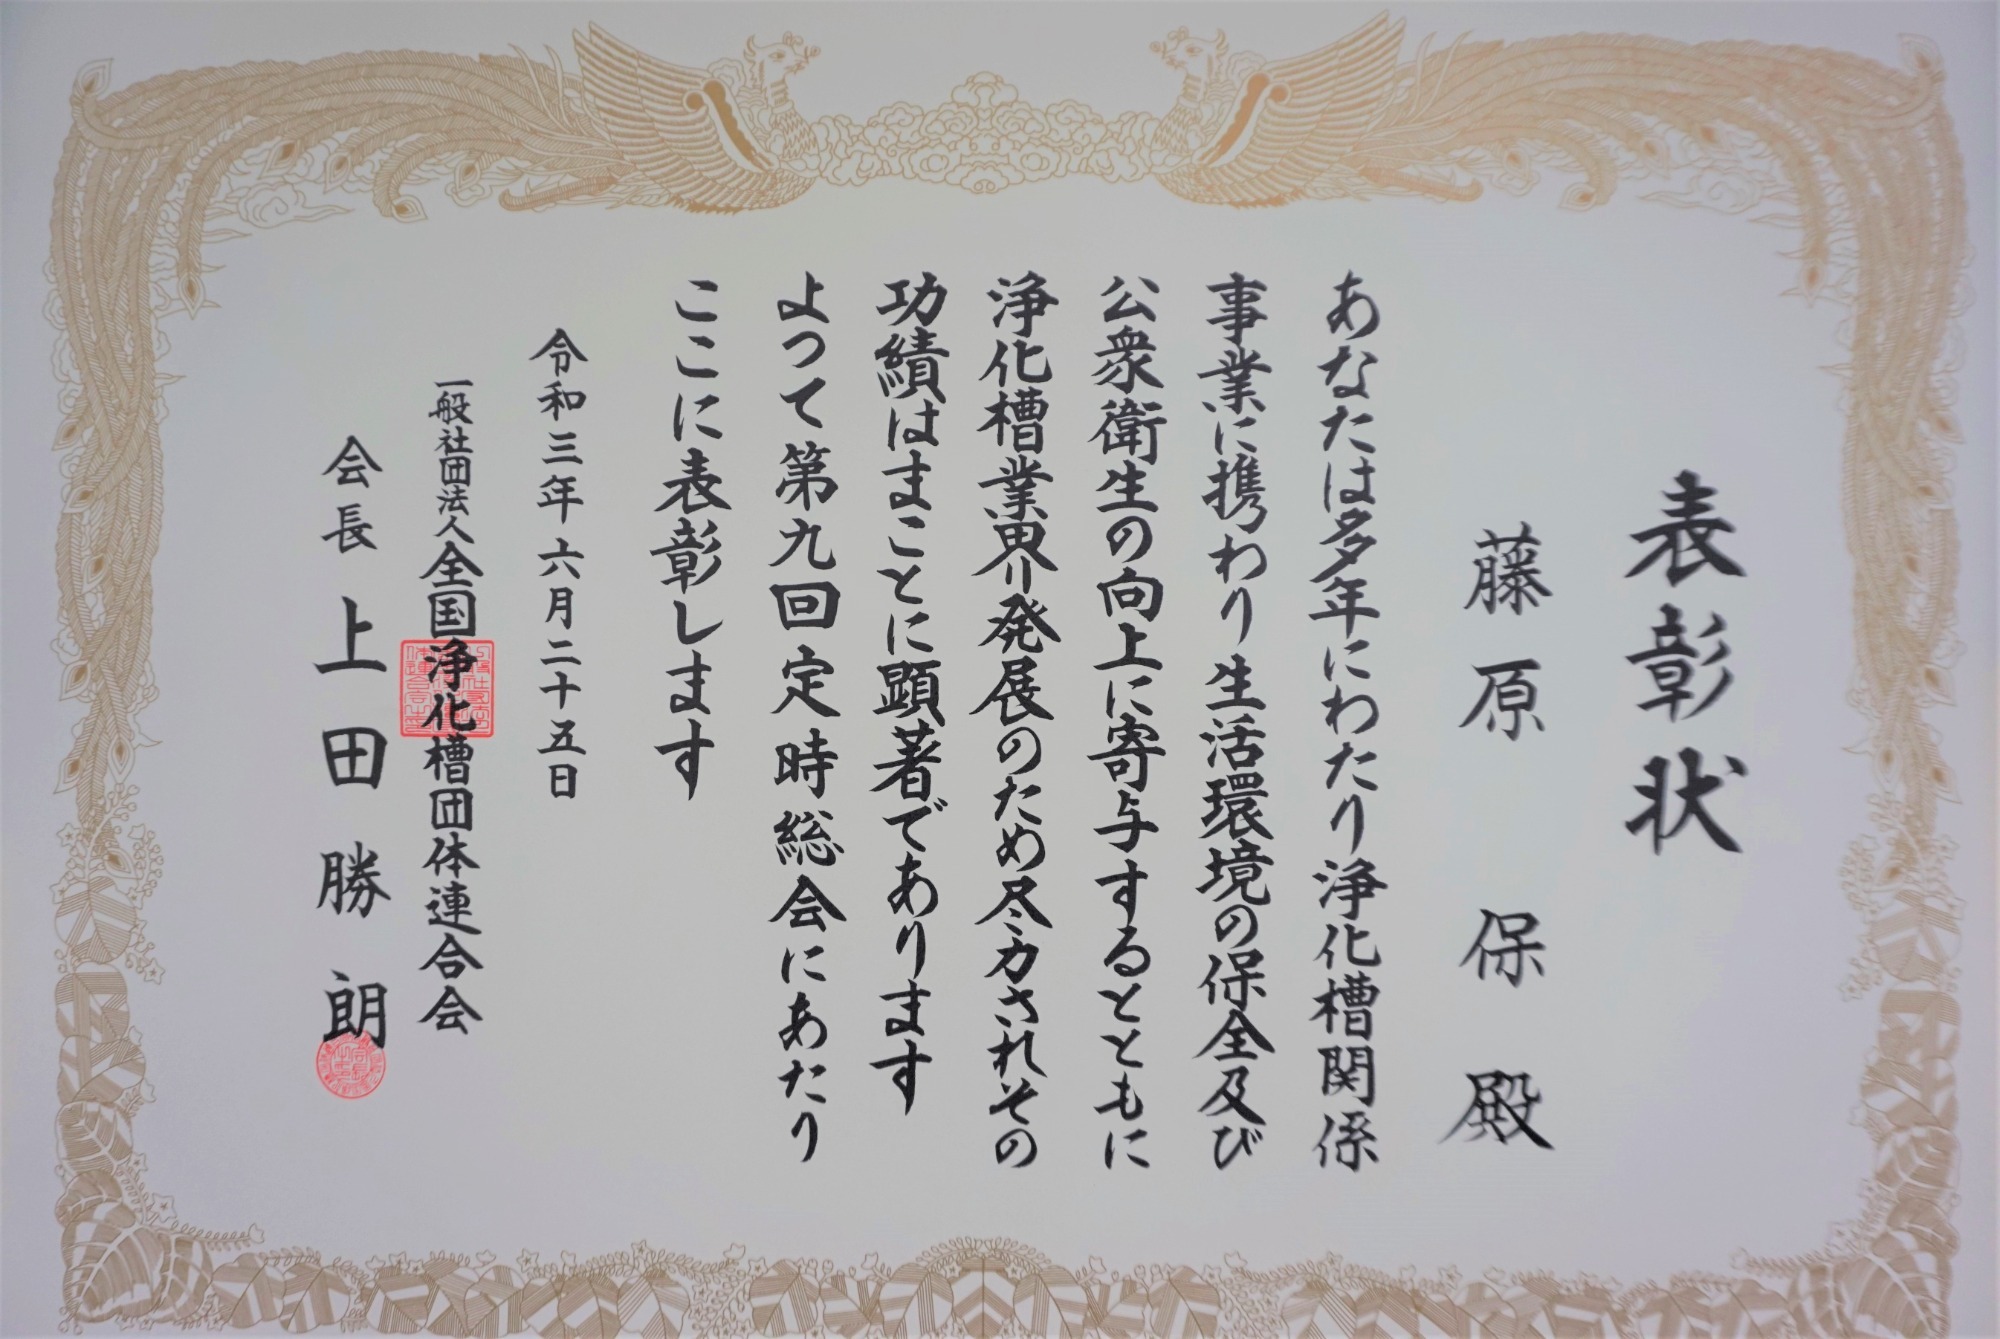 表彰状
藤原 保 殿
あなたは多年にわたり浄化槽関係
事業に携わり生活環境の保全及び
公衆衛生の向上に寄与するとともに
浄化槽業界発展のため尽力されその
功績はまことに顕著であります
よって第九回定時総会にあたり
ここに表彰します
令和三年六月二十五日
一般社団法人全国浄化槽団体連合会
会長 上田勝朗